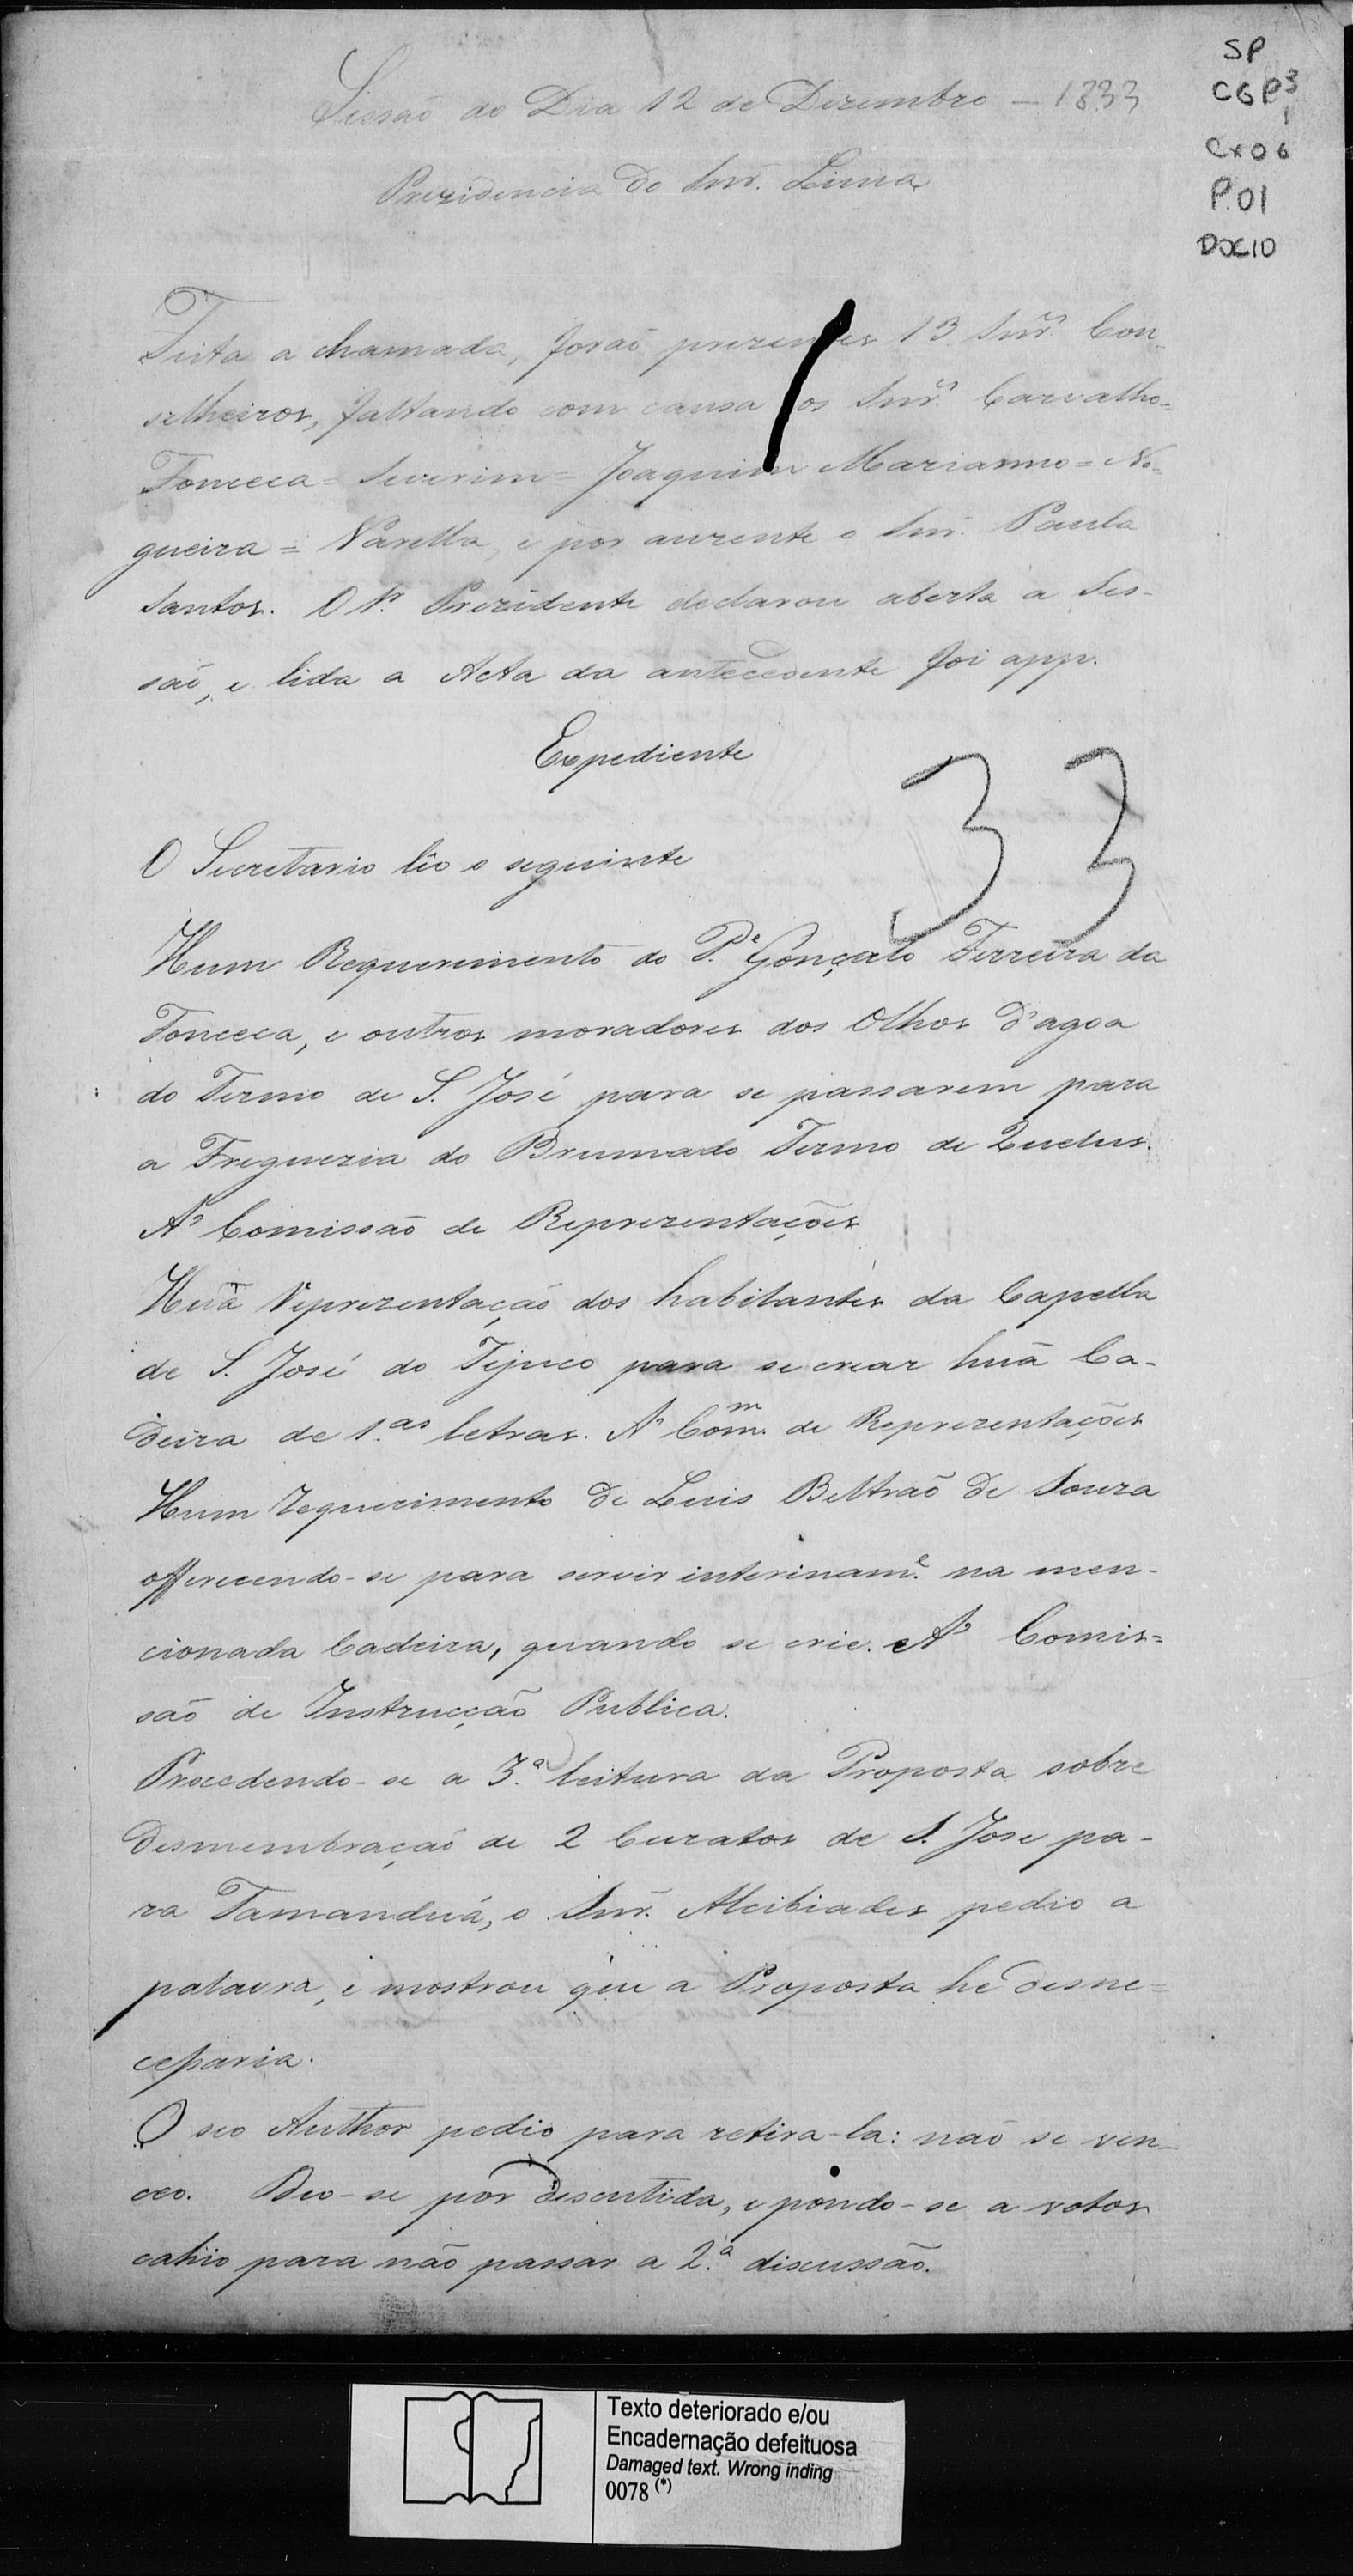 SP
CGP3
1
Cx 06
P.01
DOC10
Sessão do Dia 12 de Dezembro — 1833
Prezidencia do Snr. Lima
Feita a chamada, forão prezentes 13 Snr.es Con-
selheiros, faltando com causa os Snr.es Carvalho=
Fonceca= Severim= Joaquim Marianno= No-
gueira= Varella, e por auzente o Snr. Paula
Santos. O Sr. Prezidente declarou aberta a Ses-
são, e lida a Acta da antecedente foi app.
Expediente
33
O Secretario lêo o seguinte
Hum Requerimento do P.e Gonçalo Ferreira da
Fonceca, e outros moradores dos Olhos d'agoa
do Termo de S. José para se passarem para
a Freguezia do Brumado Termo de Queluz.
A' Comissão de Reprezentações
Huã Reprezentação dos habitantes da Capella
de S. José do Tejuco para se crear huã Ca-
deira de 1.as letras. A' Com.m de Reprezentações
Hum requerimento de Luis Beltrão de Souza
offerecendo-se para servir interinam.e na men-
cionada Cadeira, quando se crie. A' Comis=
são de Instrucção Publica.
Procedendo-se a 3.a leitura da Proposta sobre
desmembração de 2 Curatos de S. José pa-
ra Tamanduá, o Snr. Alcibiades pedio a
palavra, e mostrou que a Proposta hé desne=
cessaria.
O seo Author pedio para retira-la: não se ven-
ceo. Deo-se por discutida, e pondo-se a votos
cahio para não passar a 2.a discussão.
Texto deteriorado e/ou
Encadernação defeituosa
Damaged text. Wrong inding
0078 (*)